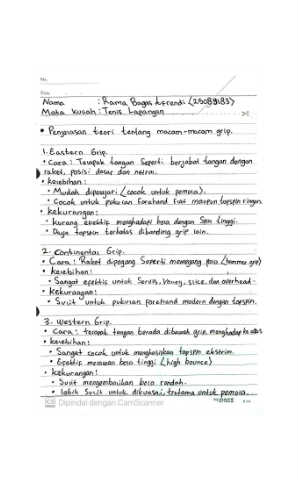 No.
Date.
Nama : Rama Bagas
Mata kuliah : Tenis Lapangan
• Penjelasan teori tentang macam-macam grip.
1. Eastern Grip.
• Cara : Telapak tangan seperti berjabat tangan dengan
raket, posisi dasar dan netral.
• kelebihan :
• Mudah dipelajari (cocok untuk pemula).
• Cocok untuk pukulan forehand flat maupun topspin ringan.
• kekurangan :
• kurang efektif menghadapi bola dengan Spin tinggi.
• Daya topspin terbatas dibanding grip lain.
2. Continental Grip.
• Cara : Raket dipegang Seperti memegang palu (hammer grip)
• kelebihan :
• Sangat efektif untuk Servis, Volley, slice, dan overhead.
• kekurangan :
• Sulit untuk pukulan forehand modern dengan topspin.
3. Western Grip.
• Cara : telapak tangan berada dibawah grip, menghadap ke atas
• kelebihan :
• Sangat cocok untuk menghasilkan topspin ekstrim.
• Efektif melawan bola tinggi (high bounce)
• kekurangan :
• Sulit mengembalikan bola rendah.
• lebih Sulit untuk dikuasai, terutama untuk pemula.
CS Dipindai dengan CamScanner